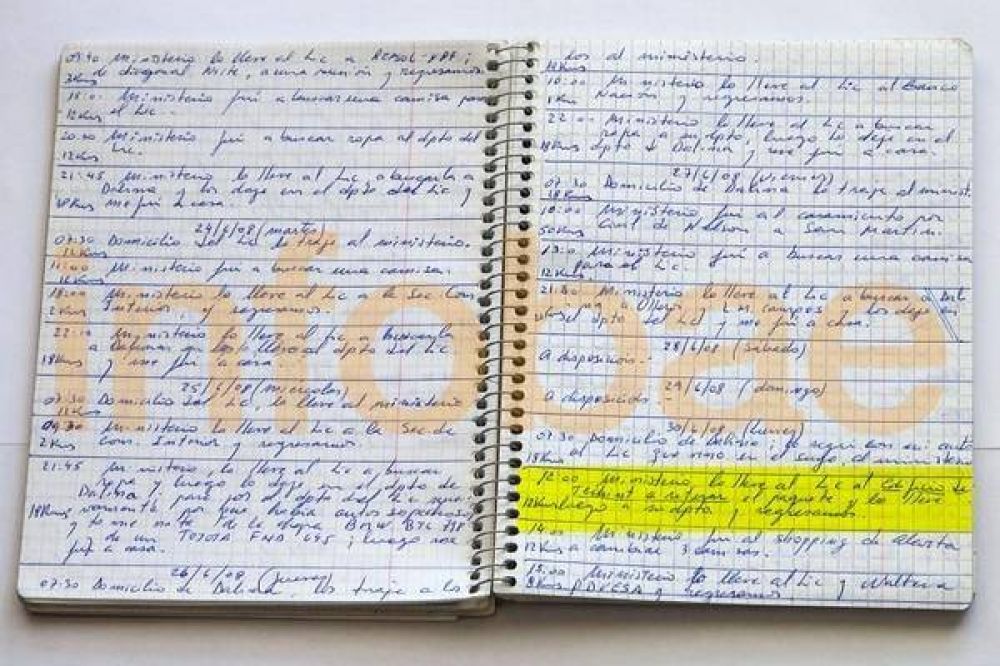 Ministerio lo lleve al Lic a REPSOL YPF
de diagonal Norte, a una reunión y regresamos.
3Kms
Ministerio fui a buscar una camisa para
el Lic.
12Kms
20:00 Ministerio fui a buscar ropa al dpto del
Lic.
12Kms
21:45 Ministerio lo lleve al Lic a buscarla a
Dalina y los deje en el dpto del Lic y
me fui a casa.
24/6/08 (martes)
07:30 Domicilio del Lic lo traje al ministerio.
12Kms
Ministerio fui a buscar una camisa.
18:00 Ministerio lo lleve al Lic a la Sec Com
2Kms Interior, y regresamos.
22:10 Ministerio lo lleve al Lic a buscarla
a Dalina al dpto del Lic
18Kms y me fui a casa.
25/6/08 (miercoles)
07:30 Domicilio del Lic, lo lleve al ministerio
12Kms
Ministerio lo lleve al Lic a la Sec. de
2Kms Com. Interior y regresamos.
21:45 Ministerio, lo lleve al Lic a buscar
ropa y luego lo deje en el dpto de
Dalina; pase por el dpto del Lic nue-
18Kms vamente por que había autos sospechosos
y tome nota de la chapa BMW
y de un TOYOTA luego me
fui a casa.
26/6/08 (jueves)
07:30 Domicilio de Dalina, los traje a los
dos al ministerio.
18Kms
10:00 Ministerio lo lleve al Lic al Banco
1Km Nación y regresamos.
22:00 Ministerio lo lleve al Lic a buscar
ropa a su dpto, luego lo deje en el
18Kms dpto de Dalina y me fui a casa.
27/6/08 (viernes)
07:30 Domicilio de Dalina lo traje al minist.
18Kms
10:00 Ministerio fui al casamiento por
50Kms Civil de Nelson a San Martin.
Ministerio fui a buscar una camisa
para el Lic.
12Kms
Ministerio lo lleve al Lic a buscar a Dali
y los deje en
el dpto del Lic y me fui a casa.
28/6/08 (sabado)
A disposición.-
29/6/08 (domingo)
A disposición.-
30/6/08 (lunes)
07:30 Domicilio de Dalina; lo segui con mi auto
al Lic que iba en el suyo, al ministerio
18Kms
12:00 Ministerio, lo lleve al Lic al
a el paquete y lo lleve
12Kms luego a su dpto y regresamos.
Ministerio fui al shopping de Alcorta
12Kms a cambiar 3 camisas.
15:00 Ministerio lo lleve al Lic y
8Kms y regresamos
infobae